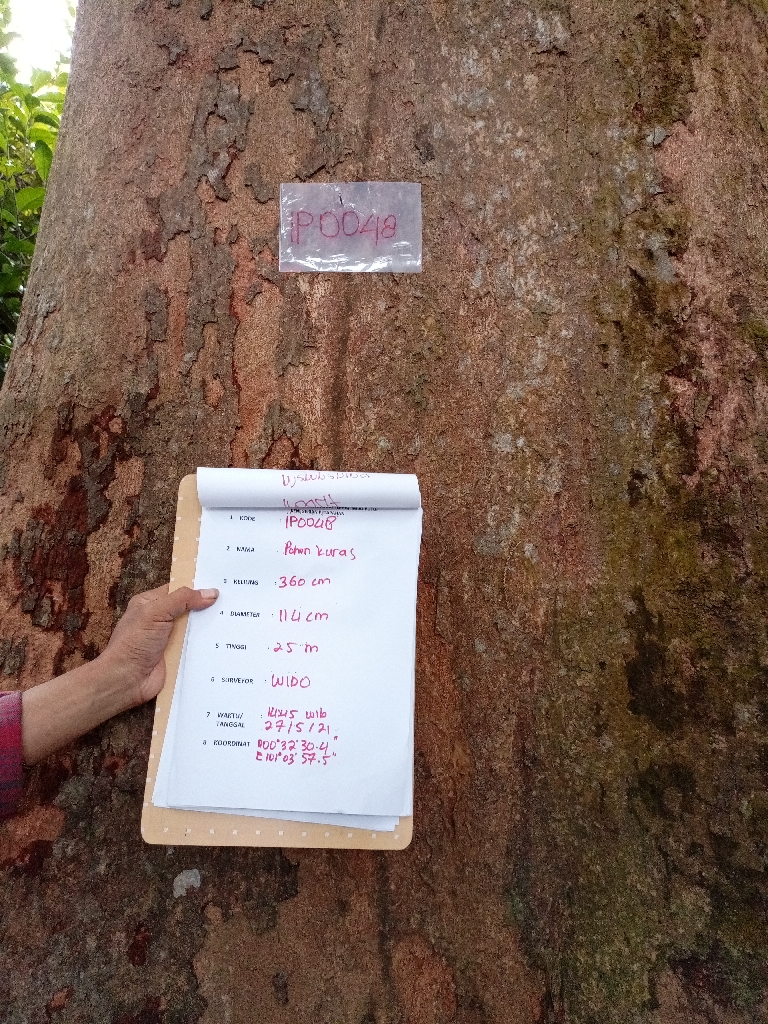 IP0048
1 KODE : IP0048
2 NAMA : Pohon kuras
3 KELILING : 360 cm
4 DIAMETER : 114 cm
5 TINGGI : 25 m
6 SURVEYOR : WIDO
7 WAKTU/ : 14:45 wib
TANGGAL 27/5/21
8 KOORDINAT N00°32'30.4"
E101°03'57.5"